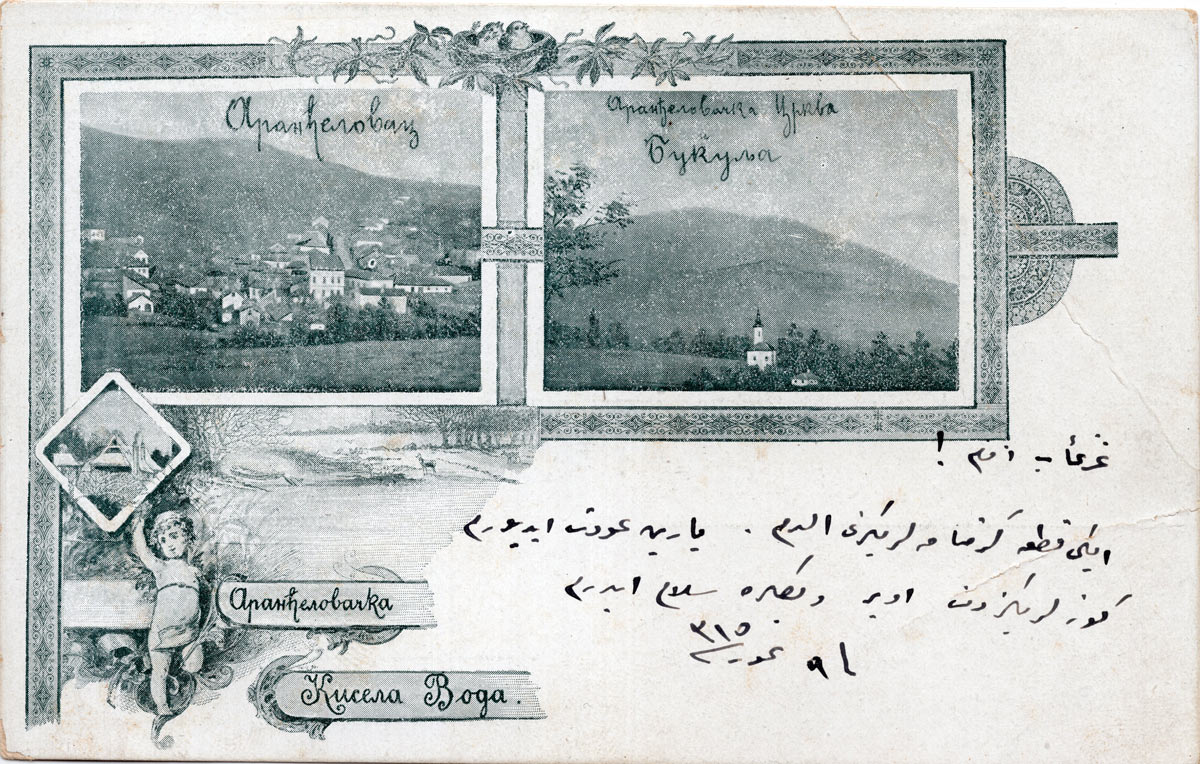 Аранђеловац
Аранђеловачка Црква
и
Букуља
Аранђеловачка
Кисела Вода.
!
ايكى قطعه لريكزى الدم . يارين عودت ايديورم
كوزلريكزدن اوپر سلام ايدرم
٣١٥